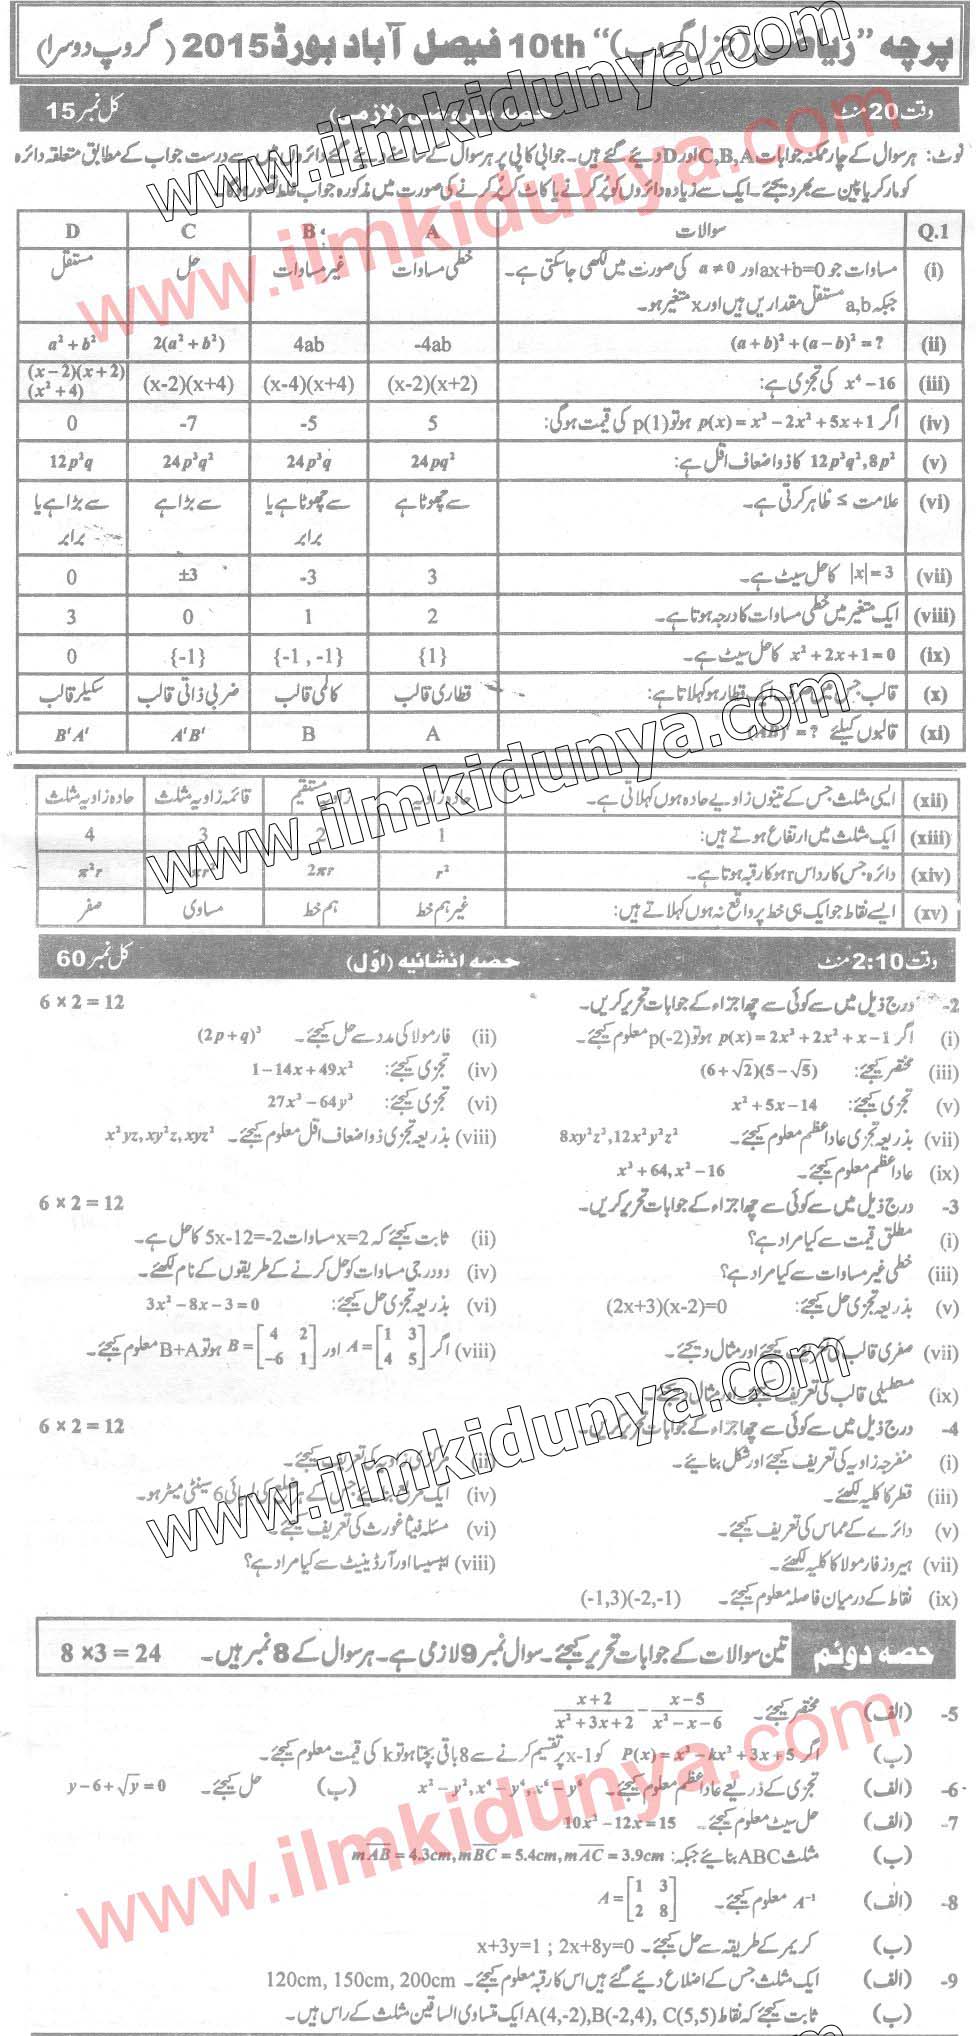 پرچہ "ریاضی (جنرل گروپ)" 10th فیصل آباد بورڈ 2015 (گروپ دوسرا)
وقت 20 منٹ حصہ معروضی (لازمی) کل نمبر 15
نوٹ: ہر سوال کے چار ممکنہ جوابات C,B,A اور D دیے گئے ہیں۔ جوابی کاپی پر ہر سوال کے سامنے دیئے گئے دائروں میں سے درست جواب کے مطابق متعلقہ دائرہ
کو مارکر یا پین سے بھر دیجئے۔ ایک سے زیادہ دائروں کو پُر کرنے یا کاٹ کر پُر کرنے کی صورت میں مذکورہ جواب غلط تصور ہوگا۔
Q.1 سوالات A B C D
(i) مساوات جو ax+b=0 اور a ≠ 0 کی صورت میں لکھی جا سکتی ہے۔ خطی مساوات غیر مساوات حل مستقل
جبکہ a,b مستقل مقداریں ہیں اور x متغیر ہو۔
(ii) (a+b)² + (a−b)² = ? -4ab 4ab 2(a² + b²) a² + b²
(iii) x⁴ −16 کی تجزی ہے: (x-2)(x+2) (x-4)(x+4) (x-2)(x+4) (x−2)(x+2)(x² +4)
(iv) اگر p(x) = x³ −2x² +5x+1 ہو تو p(1) کی قیمت ہوگی: 5 -5 -7 0
(v) 12p³q², 8p² کا ذواضعاف اقل ہے: 24pq² 24p³q 24p³q² 12p³q
(vi) علامت ≥ ظاہر کرتی ہے۔ سے چھوٹا ہے سے چھوٹا ہے یا برابر سے بڑا ہے سے بڑا ہے یا برابر
(vii) |x| = 3 کا حل سیٹ ہے۔ 3 -3 ±3 0
(viii) ایک متغیر میں خطی مساوات کا درجہ ہوتا ہے۔ 2 1 0 3
(ix) x² +2x+1=0 کا حل سیٹ ہے۔ {1} {-1 , -1} {-1} 0
(x) قالب جس میں صرف ایک قطار ہو کہلاتا ہے: قطاری قالب کالمی قالب ضربی ذاتی قالب سکیلر قالب
(xi) قالبوں کیلئے (AB)ᵗ = ? A B AᵗBᵗ BᵗAᵗ
(xii) ایسی مثلث جس کے تینوں زاویے حادہ ہوں کہلاتی ہے۔ حادہ زاویہ زاویہ مستقیم قائمہ زاویہ مثلث حادہ زاویہ مثلث
(xiii) ایک مثلث میں ارتفاع ہوتے ہیں: 1 2 3 4
(xiv) دائرہ جس کا رداس r ہو کا رقبہ ہوتا ہے۔ r² 2πr πr² π²r
(xv) ایسے نقاط جو ایک ہی خط پر واقع نہ ہوں کہلاتے ہیں: غیر ہم خط ہم خط مساوی صفر
وقت 2:10 منٹ حصہ انشائیہ (اوّل) کل نمبر 60
2- درج ذیل میں سے کوئی سے چھ اجزاء کے جوابات تحریر کریں۔ 6 × 2 = 12
(i) اگر p(x) = 2x³ +2x² + x−1 ہو تو p(-2) معلوم کیجئے۔ (ii) فارمولا کی مدد سے حل کیجئے۔ (2p+q)³
(iii) مختصر کیجئے: (6+√2)(5−√5) (iv) تجزی کیجئے: 1−14x+49x²
(v) تجزی کیجئے: x² +5x−14 (vi) تجزی کیجئے: 27x³ −64y³
(vii) بذریعہ تجزی عاداعظم معلوم کیجئے۔ 8xy²z³, 12x²y²z² (viii) بذریعہ تجزی ذواضعاف اقل معلوم کیجئے۔ x²yz, xy²z, xyz²
(ix) عاداعظم معلوم کیجئے۔ x³ +64, x² −16
3- درج ذیل میں سے کوئی سے چھ اجزاء کے جوابات تحریر کریں۔ 6 × 2 = 12
(i) مطلق قیمت سے کیا مراد ہے؟ (ii) ثابت کیجئے کہ x=2 مساوات 5x-12=-2 کا حل ہے۔
(iii) خطی غیر مساوات سے کیا مراد ہے؟ (iv) دو درجی مساوات کو حل کرنے کے طریقوں کے نام لکھئے۔
(v) بذریعہ تجزی حل کیجئے: (2x+3)(x-2)=0 (vi) بذریعہ تجزی حل کیجئے: 3x² −8x−3=0
(vii) صفری قالب کی تعریف کیجئے اور مثال دیجئے۔ (viii) اگر A = [1 3; 4 5] اور B = [4 2; −6 1] ہو تو B+A معلوم کیجئے۔
(ix) مستطیلی قالب کی تعریف کیجئے اور مثال دیجئے۔
4- درج ذیل میں سے کوئی سے چھ اجزاء کے جوابات تحریر کریں۔ 6 × 2 = 12
(i) منفرجہ زاویہ کی تعریف کیجئے اور شکل بنائیے۔ (ii) مرکزی زاویہ کی تعریف کیجئے۔
(iii) قطر کا کلیہ لکھئے۔ (iv) ایک مربع بنائیے جس کے ہر ضلع کی لمبائی 6 سینٹی میٹر ہو۔
(v) دائرے کے مماس کی تعریف کیجئے۔ (vi) مسئلہ فیثاغورث کی تعریف کیجئے۔
(vii) ہیروز فارمولا کا کلیہ لکھئے۔ (viii) ایبسیسا اور آرڈینیٹ سے کیا مراد ہے؟
(ix) نقاط کے درمیان فاصلہ معلوم کیجئے۔ (-1,3)(-2,-1)
حصہ دوئم تین سوالات کے جوابات تحریر کیجئے۔ سوال نمبر 9 لازمی ہے۔ ہر سوال کے 8 نمبر ہیں۔ 8 ×3 = 24
5- (الف) مختصر کیجئے۔ (x+2)/(x² +3x+2) − (x−5)/(x² −x−6)
(ب) اگر P(x) = x³ −kx² +3x+5 کو x-1 پر تقسیم کرنے سے 8 باقی بچتا ہو تو k کی قیمت معلوم کیجئے۔
6- (الف) تجزی کے ذریعے عاداعظم معلوم کیجئے۔ x² −y², x⁴ −y⁴, x⁶ −y⁶ (ب) حل کیجئے۔ y−6+√y=0
7- (الف) حل سیٹ معلوم کیجئے۔ 10x² −12x=15
(ب) مثلث ABC بنائیے جبکہ: mAB = 4.3cm, mBC = 5.4cm, mAC = 3.9cm
8- (الف) A⁻¹ معلوم کیجئے۔ A = [1 3; 2 8]
(ب) کریمر کے طریقہ سے حل کیجئے۔ x+3y=1 ; 2x+8y=0
9- (الف) ایک مثلث جس کے اضلاع دیئے گئے ہیں اس کا رقبہ معلوم کیجئے۔ 120cm, 150cm, 200cm
(ب) ثابت کیجئے کہ نقاط A(4,-2),B(-2,4), C(5,5) ایک متساوی الساقین مثلث کے راس ہیں۔
www.ilmkidunya.com
www.ilmkidunya.com
www.ilmkidunya.com
www.ilmkidunya.com
www.ilmkidunya.com